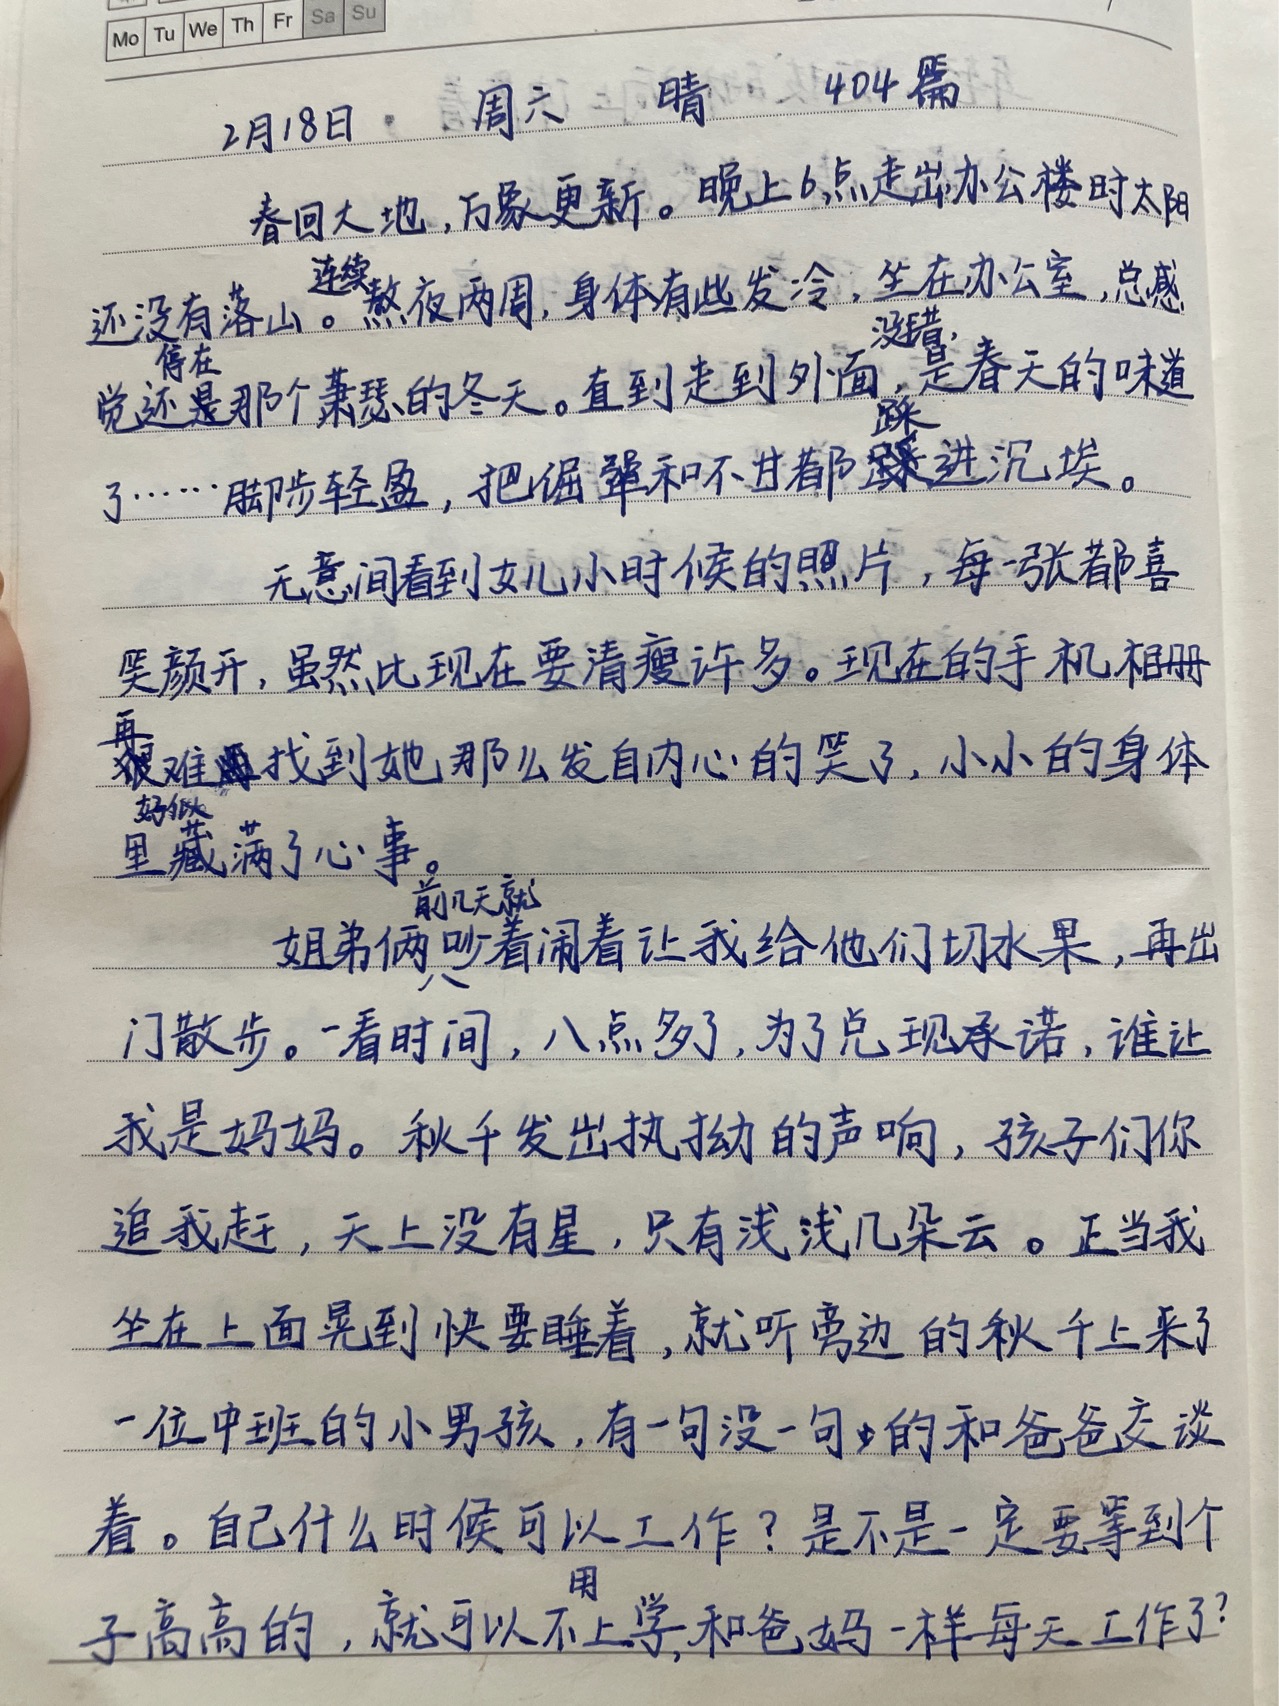 Mo Tu We Th Fr Sa Su
2月18日, 周六 晴 404篇
春回大地,万象更新。晚上6点走出办公楼时太阳
还没有落山。连续熬夜两周,身体有些发冷,坐在办公室,总感
觉还停在那个萧瑟的冬天。直到走到外面,没错,是春天的味道
了……脚步轻盈,把倔犟和不甘都踩进沉埃。
无意间看到女儿小时候的照片,每一张都喜
笑颜开,虽然比现在要清瘦许多。现在的手机相册
再难找到她那么发自内心的笑了,小小的身体
里好似藏满了心事。
姐弟俩前几天就吵着闹着让我给他们切水果,再出
门散步。一看时间,八点多了,为了兑现承诺,谁让
我是妈妈。秋千发出执拗的声响,孩子们你
追我赶,天上没有星,只有浅浅几朵云。正当我
坐在上面晃到快要睡着,就听旁边的秋千上来了
一位中班的小男孩,有一句没一句的和爸爸交谈
着。自己什么时候可以工作?是不是一定要等到个
子高高的,就可以不用上学,和爸妈一样每天工作了?